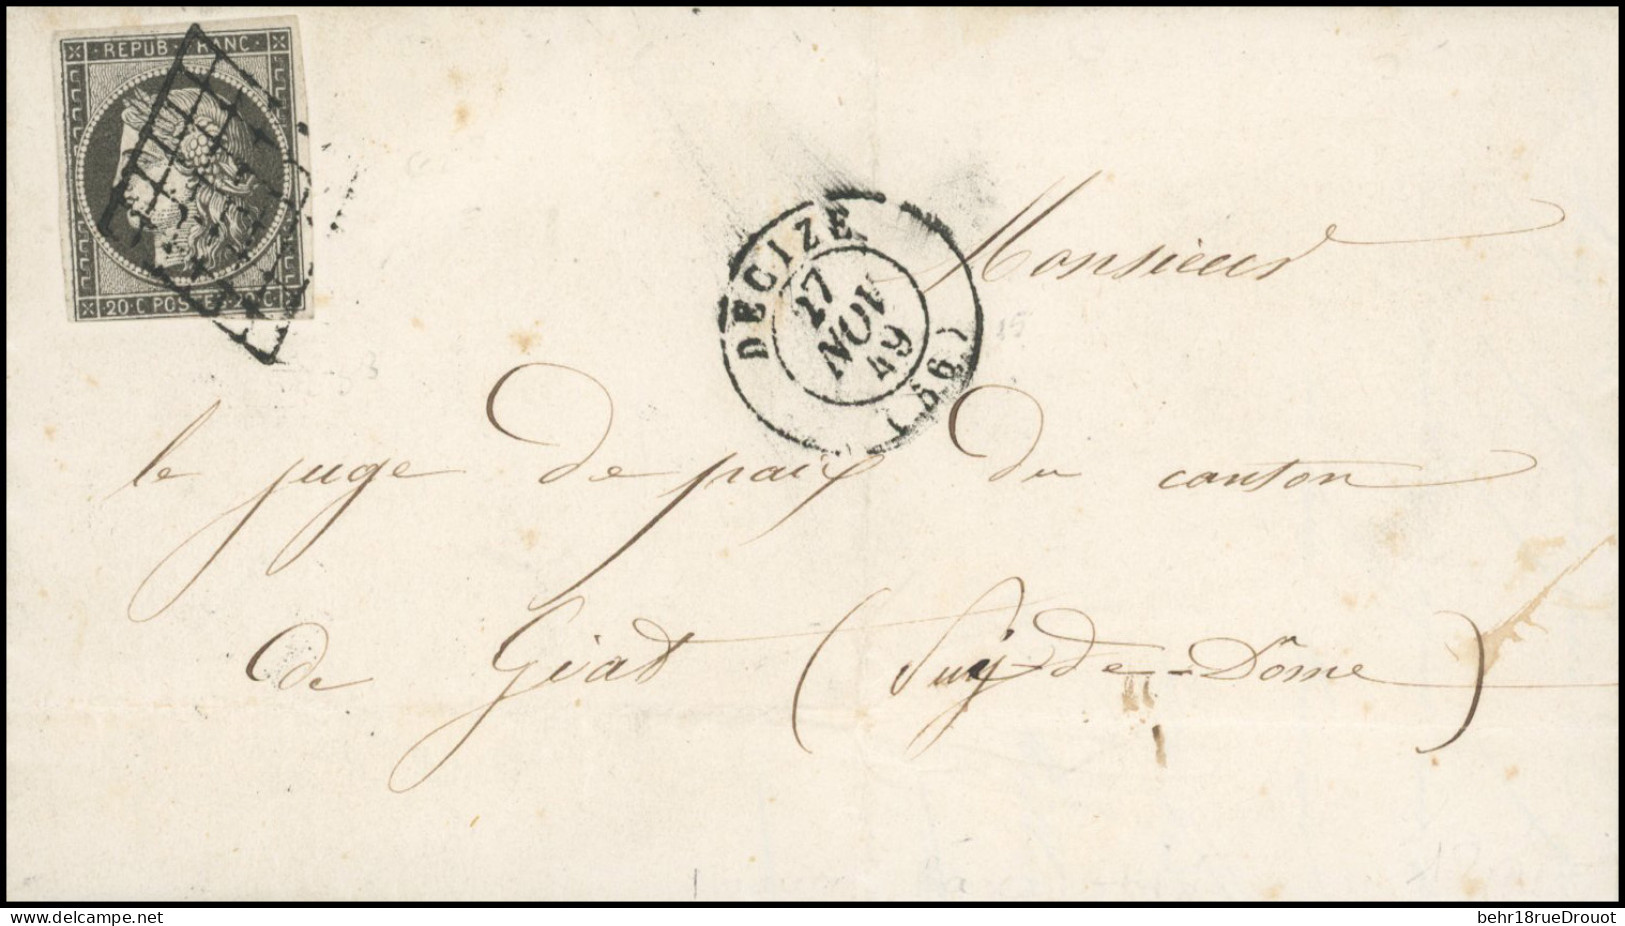 · REPUB · FRANC ·
· 20 · C POSTES 20 · C ·
DECIZE
27
NOV
49
(56)
Monsieur
le juge de paix du canton
de Giat (Puy-de-Dôme)
www.delcampe.net
behr18rueDrouot